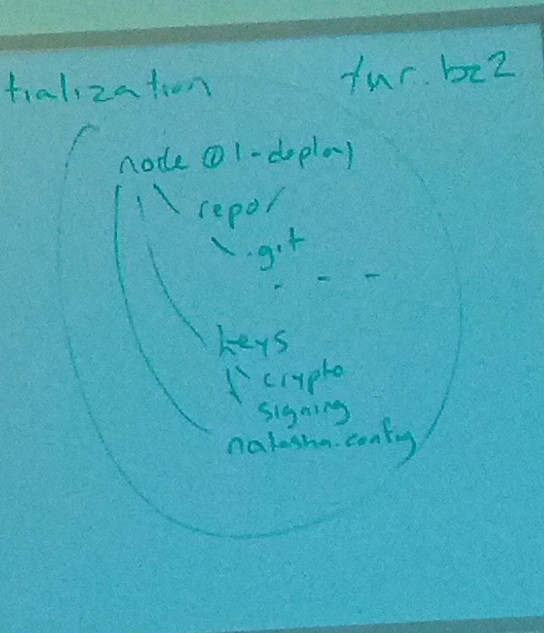 tialization tar.bz2
node01-deploy
repo/
.git
- - -
keys
crypto
signing
natasha.config